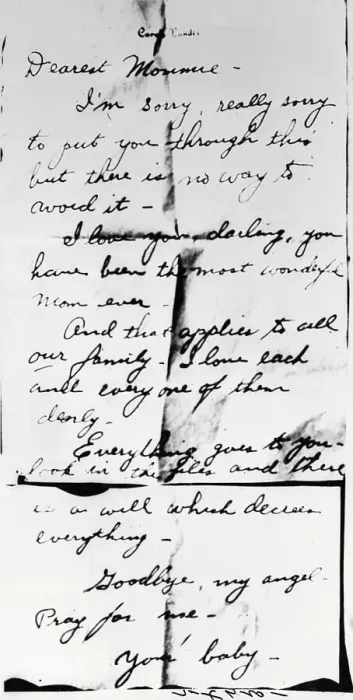 Carole Landis
Dearest Mommie -
I'm sorry, really sorry
to put you through this
but there is no way to
avoid it -
I love you, darling, you
have been the most wonderful
Mom ever -
And that applies to all
our family - I love each
and every one of them
dearly -
Everything goes to you -
look in the files and there
is a will which decrees
everything -
Goodbye, my angel -
Pray for me -
Your baby -